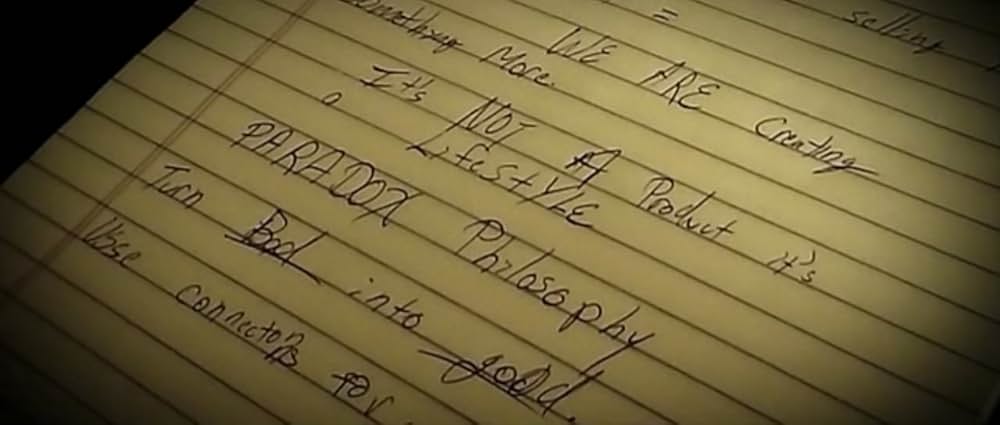 = selling
WE ARE Creating
something More.
It's NOT A Product it's
a LifestyLE
PARADOX Philosophy
Turn Bad into good.
Use connectors for